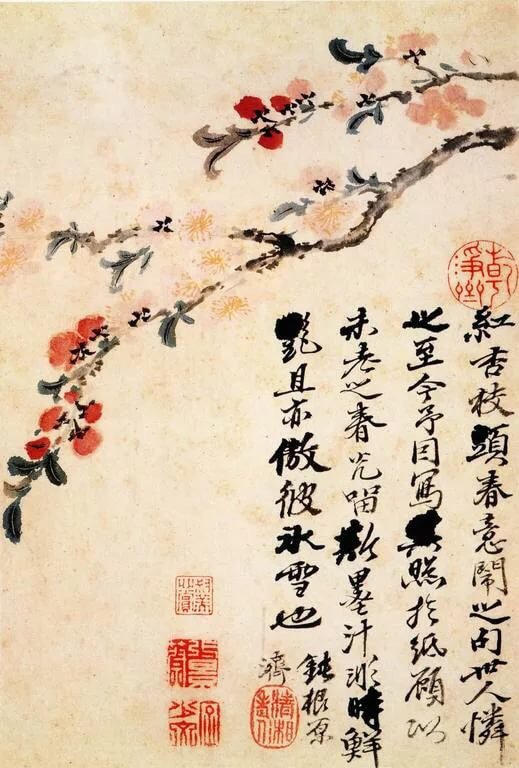 紅杏枝頭春意鬧之句世人憐
也至今予因寫其照於紙願以
未老之春光留斯墨汁時鮮
艷且亦傲彼冰雪也
鈍根原
濟
清湘老人